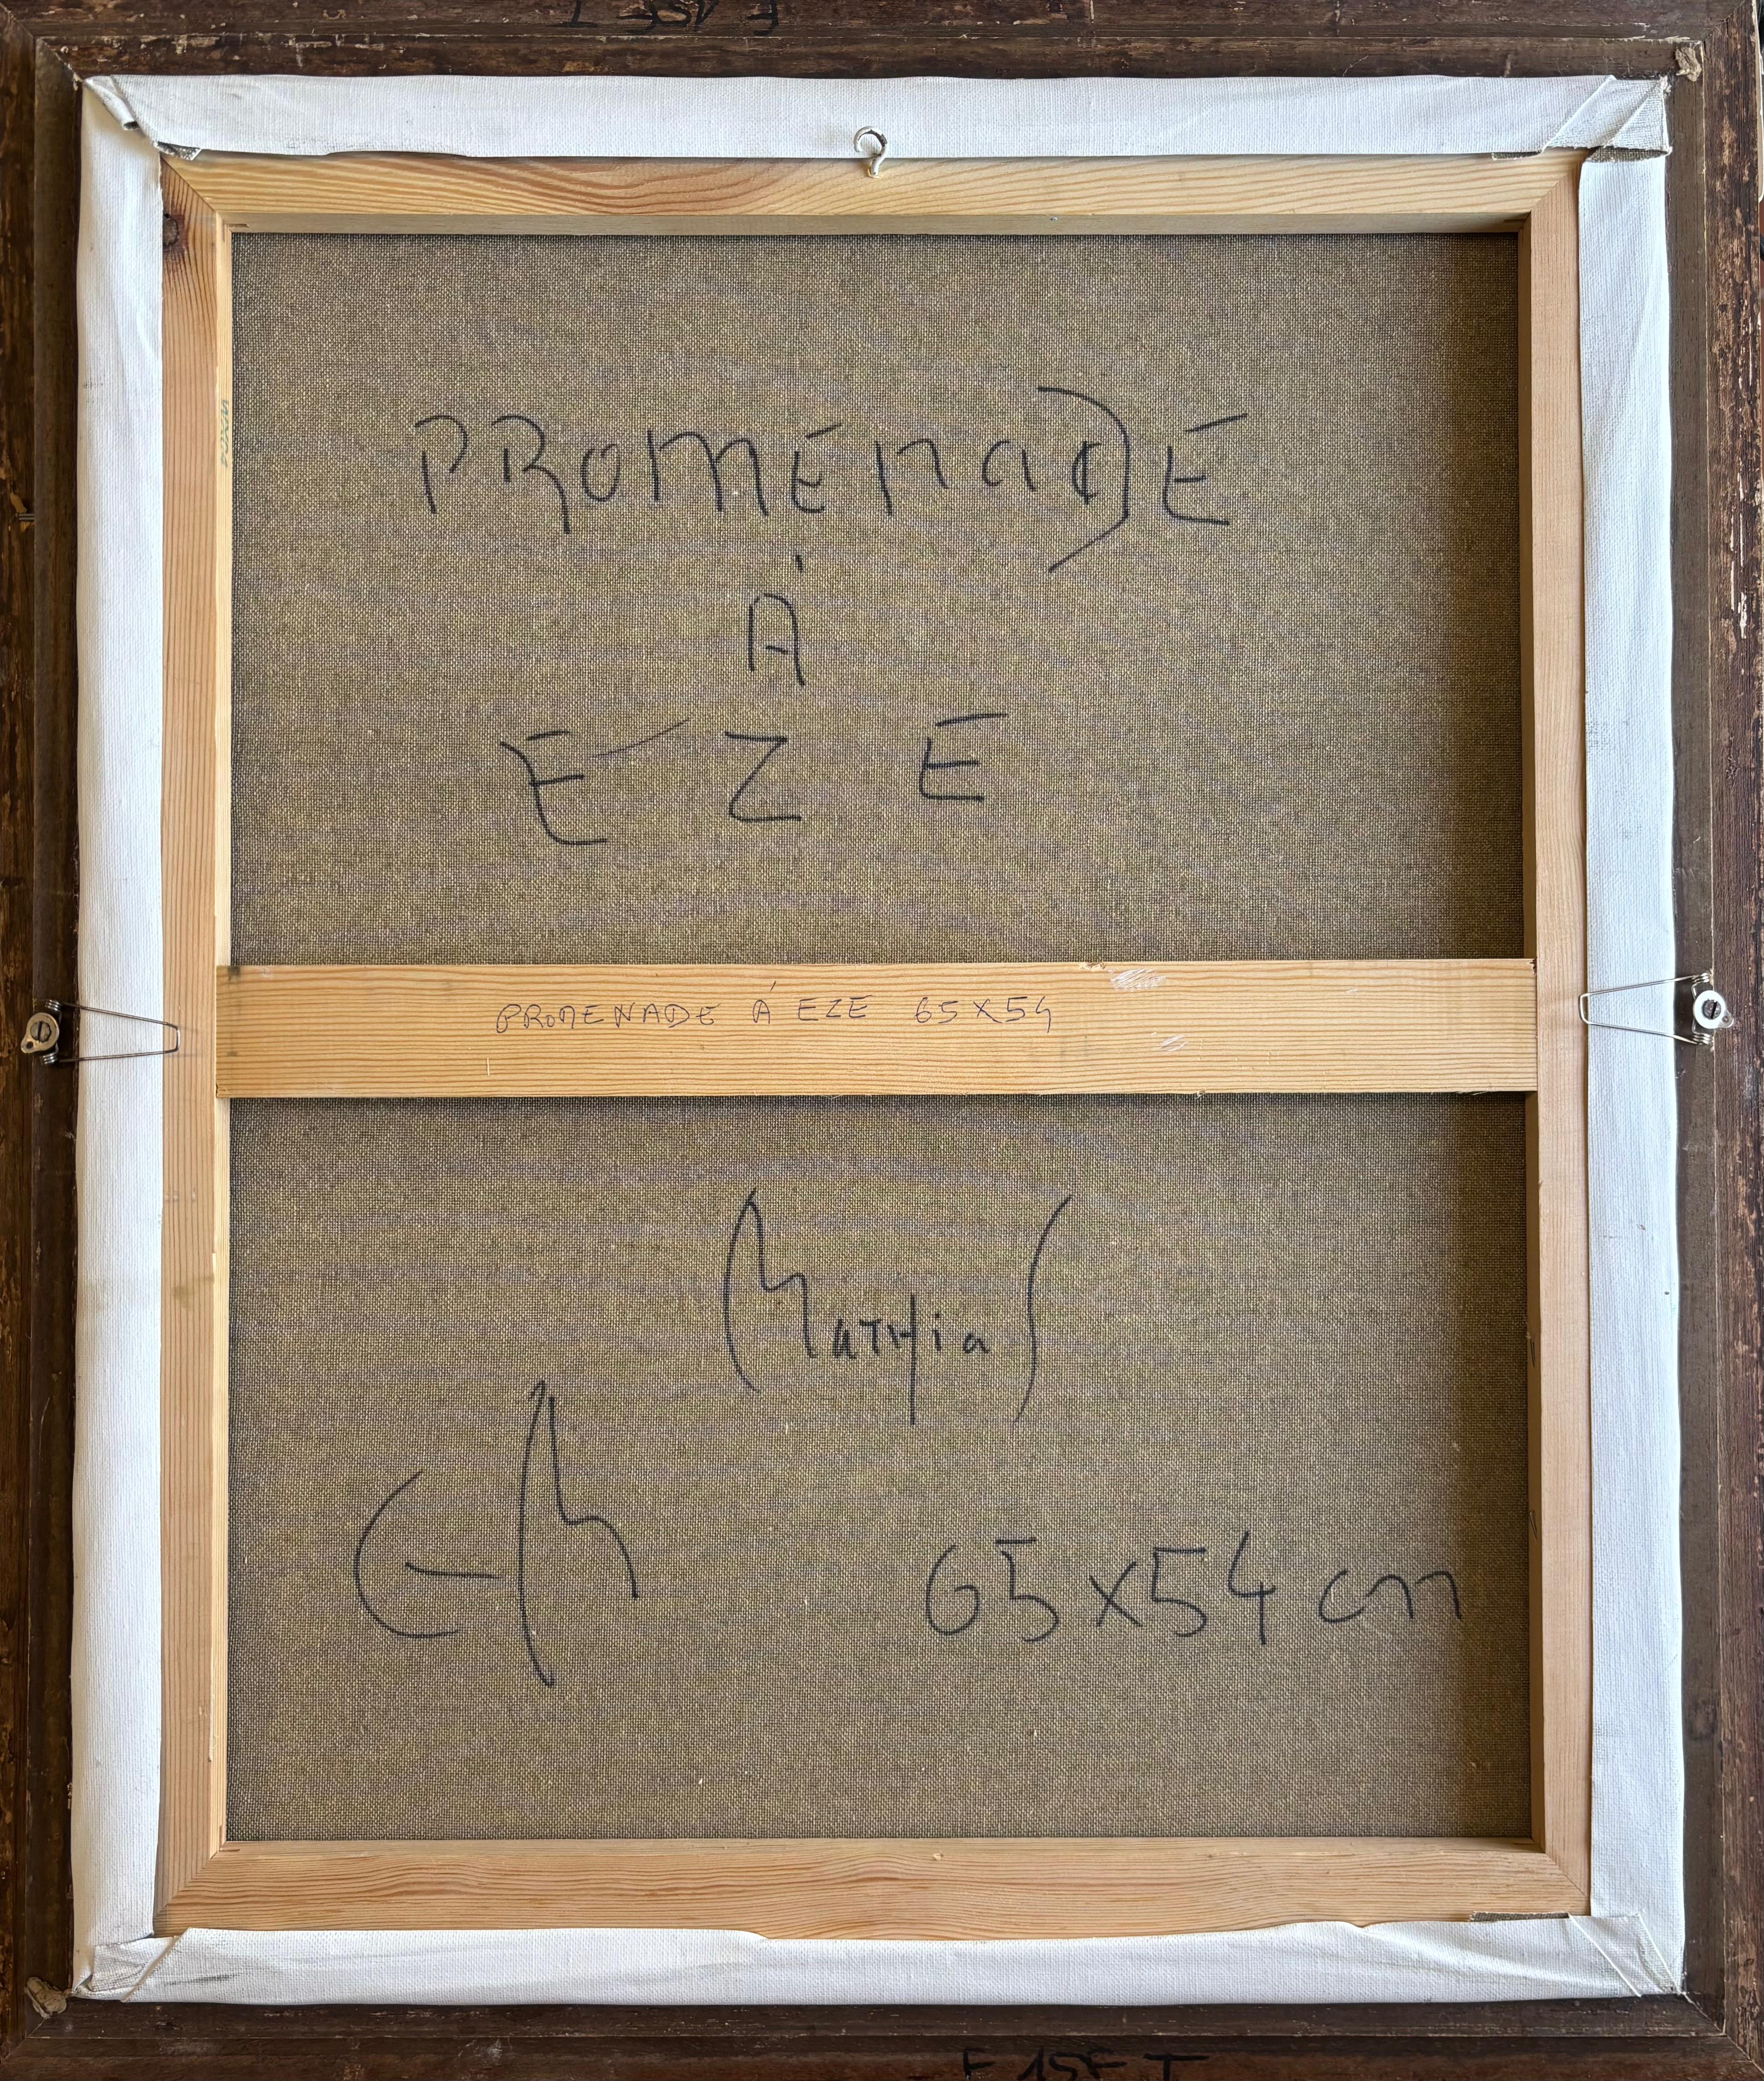 PROMENADE
À
EZE
PROMENADE Á EZE 65X54
MATHIAS
EM
65x54 cm
F 15F T